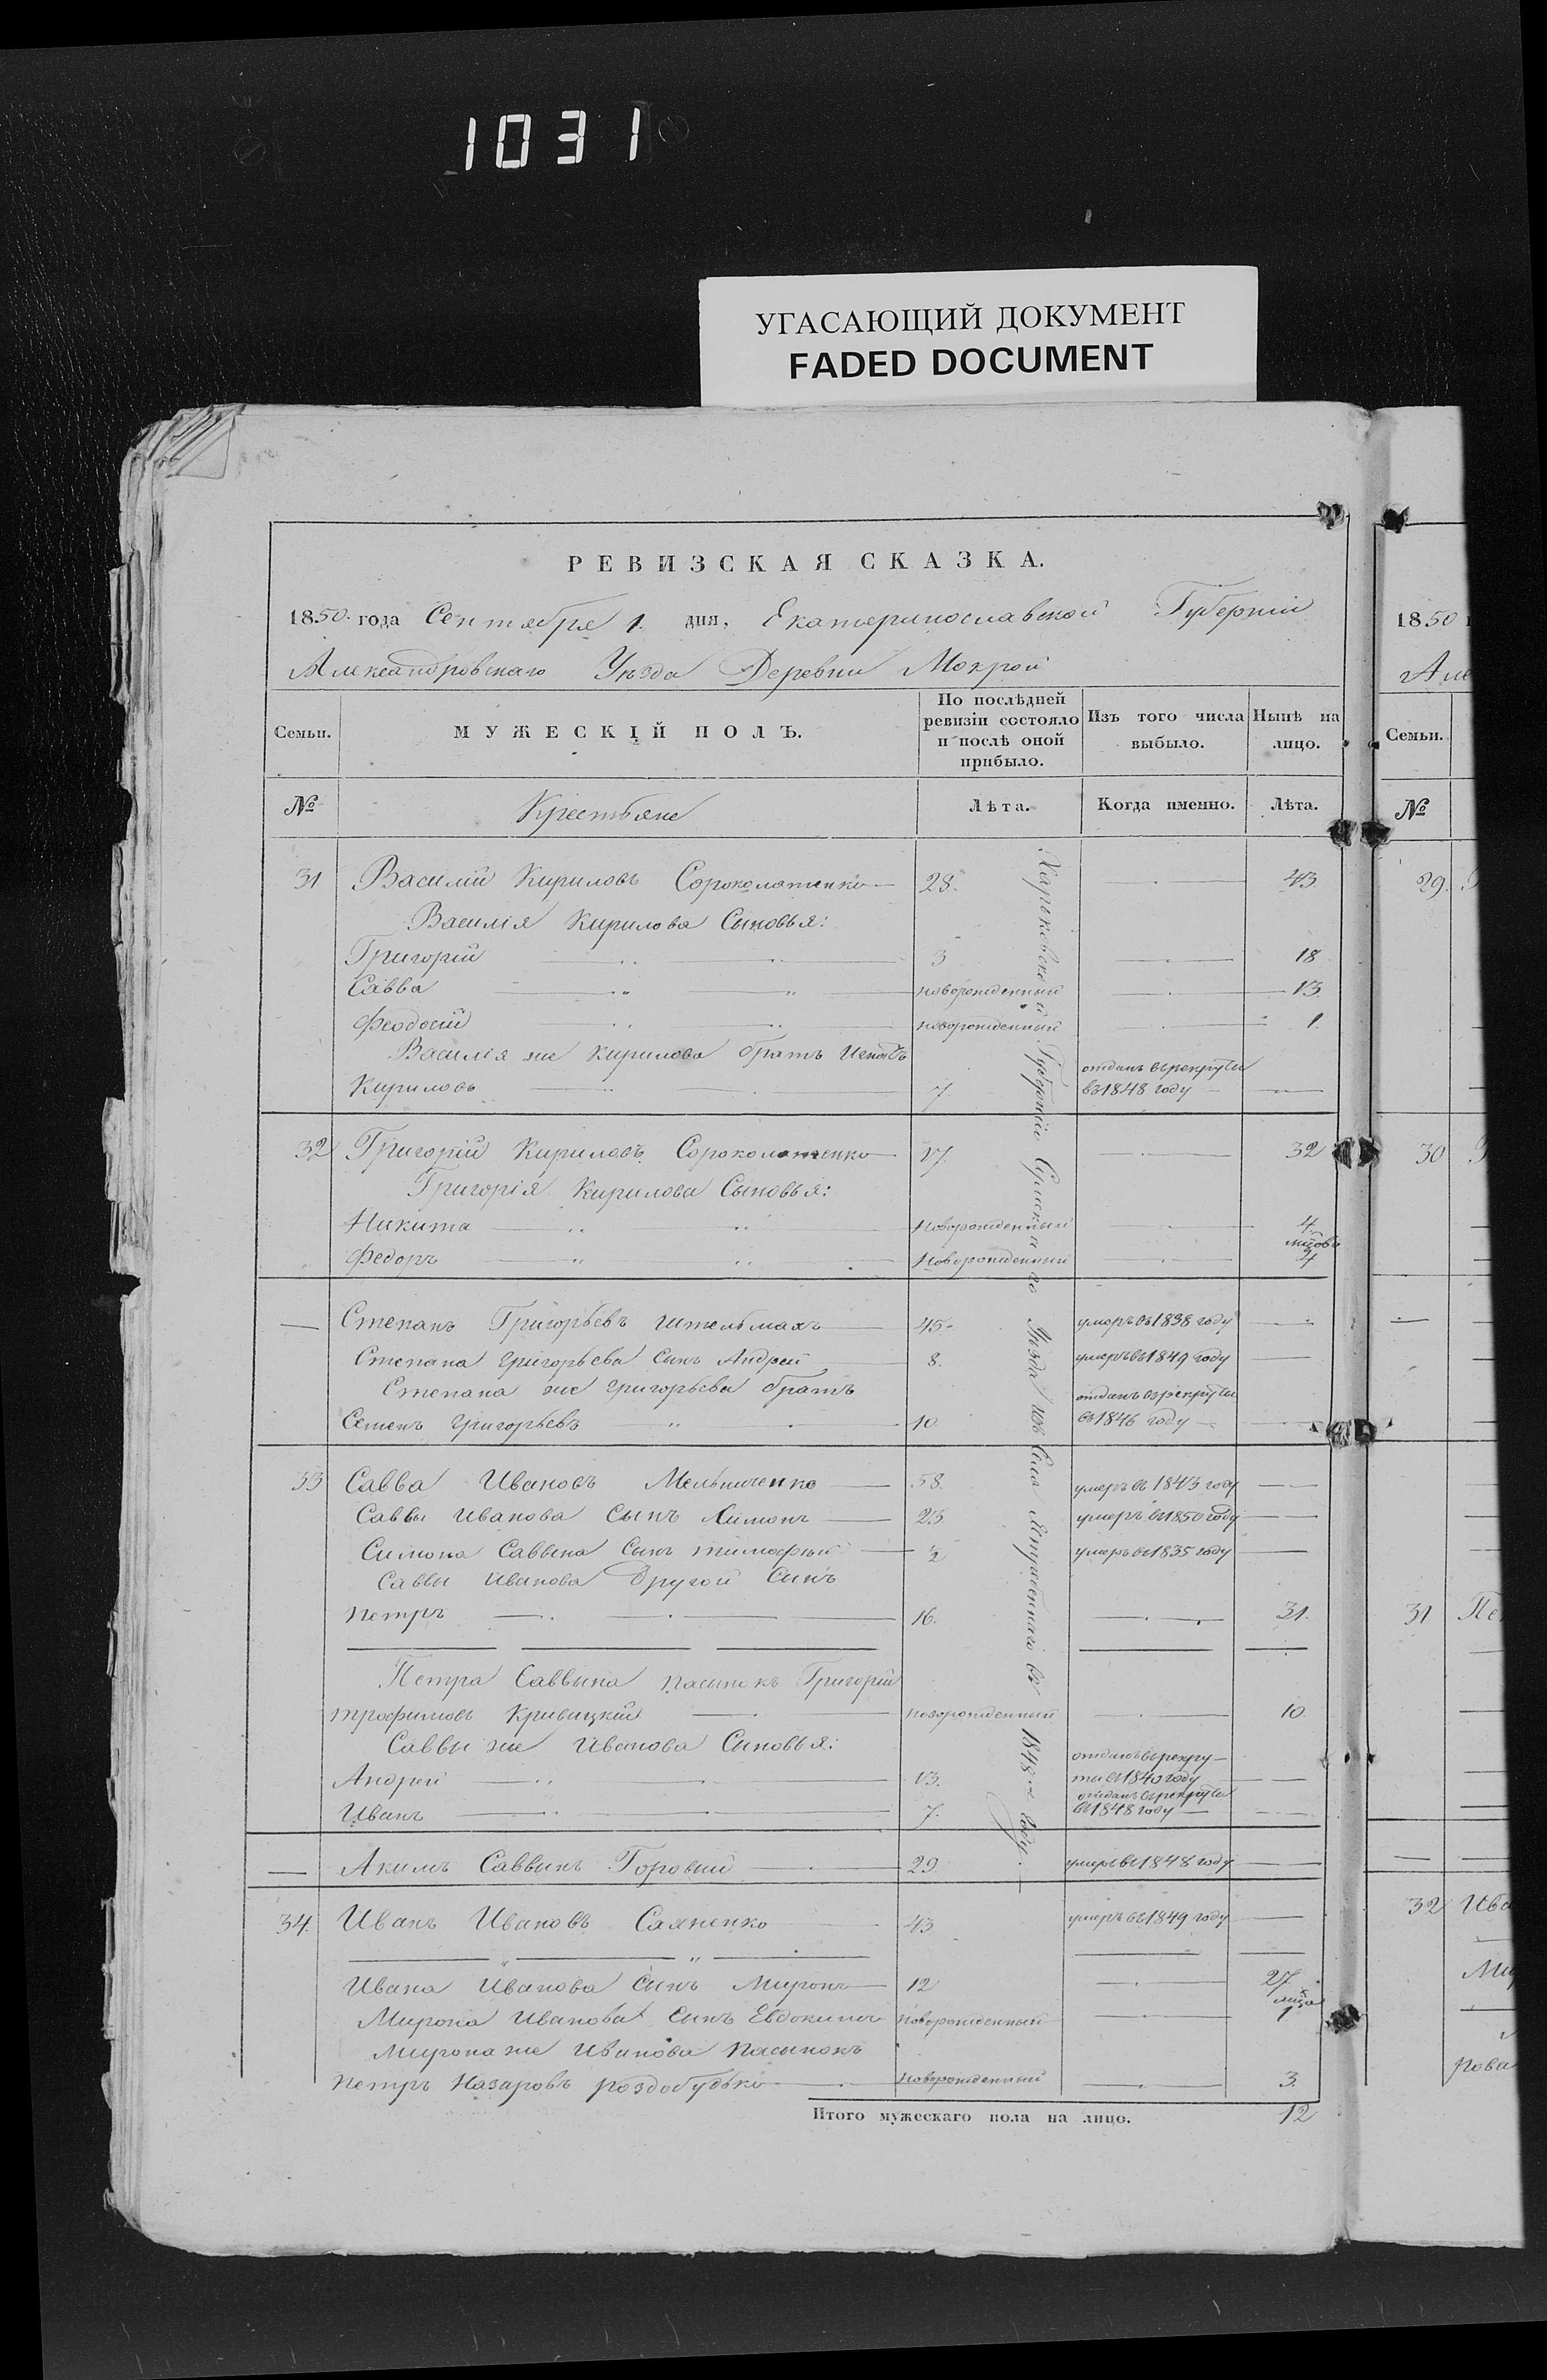 1031
УГАСАЮЩИЙ ДОКУМЕНТ
FADED DOCUMENT
РЕВИЗСКАЯ СКАЗКА.
1850. года Сентября 1. дня, Екатеринославской Губерніи
Александровскаго Уѣзда Деревни Мокрой
Семьи. МУЖЕСКІЙ ПОЛЪ. По послѣдней ревизіи состояло и послѣ оной прибыло. Изъ того числа выбыло. Нынѣ на лицо.
№ Крестьяне Лѣта. Когда именно. Лѣта.
31 Василій Кириловъ Сороколатенко 28. 43
Василія Кирилова Сыновья:
Григорій 3 18
Савва новорожденный 13
Феодосій новорожденный 1.
Василія же Кирилова братъ
Кириловъ 7 отданъ врекруты въ 1848 году
32 Григорій Кириловъ Сороколатенко 17. 32
Григорія Кирилова Сыновья:
Никита Новорожденный 4.
Федоръ Новорожденный
Степанъ Григорьевъ Штельмахъ 45 умеръ въ 1838 году
Степана Григорьева сынъ Андрей 8. умеръ въ 1849 году
Степана же Григорьева братъ
Семенъ Григорьевъ 10 отданъ врекруты въ 1846 году
33 Савва Ивановъ Мельниченко 58. умеръ въ 1843 году
Саввы Иванова Сынъ Симонъ 23 умеръ въ 1850 году
Симона Саввина Сынъ Тимофей умеръ въ 1835 году
Саввы Иванова другой Сынъ
Петръ 16. 31.
Петра Саввина пасынкъ Григорій
Трофимовъ Кривицкій новорожденный 10.
Саввы же Иванова Сыновья:
Андрей 13. отданъ врекруты въ 1840 году
Иванъ 7. отданъ врекруты въ 1848 году
Акимъ Саввинъ Горовий 29 умеръ въ 1848 году
34. Иванъ Ивановъ Саяненко 43 умеръ въ 1849 году
Ивана Иванова Сынъ Миронъ 12 27
Мирона Иванова Сынъ Евдокимъ новорожденный
Мирона же Иванова пасынокъ
Петръ Назаровъ роздобудько новорожденный 3.
Итого мужескаго пола на лицо. 12
Харьковской Губерніи Сумскаго Уѣзда изъ Села въ 1848 м году.
1850
Але
Семьи.
№
29.
30
31 Пе
32 Ива
Ми
рова